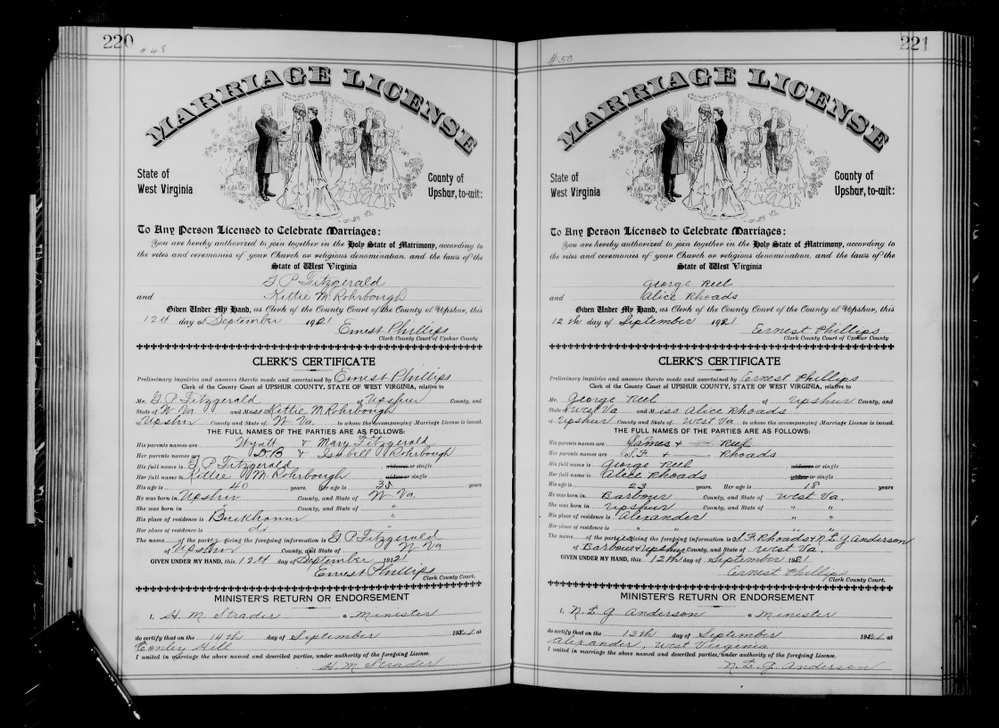 220
MARRIAGE LICENSE
State of
West Virginia
County of
Upshur, to-wit:
To Any Person Licensed to Celebrate Marriages:
You are hereby authorized to join together in the Holy State of Matrimony, according to
the rites and ceremonies of your Church or religious denomination, and the laws of the
State of West Virginia
G P Fitzgerald
and Kittie M Rohrbough
Given Under My Hand, as Clerk of the County Court of the County of Upshur, this
12th day of September 1921
Ernest Phillips
Clerk County Court of Upshur County
CLERK'S CERTIFICATE
Preliminary inquiries and answers thereto made and ascertained by Ernest Phillips
Clerk of the County Court of UPSHUR COUNTY, STATE OF WEST VIRGINIA, relative to
Mr. G P Fitzgerald of Upshur County, and
State of W Va and Miss Kittie M Rohrbough
of Upshur County and State of W Va. to whom the accompanying Marriage License is issued.
THE FULL NAMES OF THE PARTIES ARE AS FOLLOWS:
His parents names are Wyatt & Mary Fitzgerald
Her parents names D B & Isabell Rohrbough
His full name is G P Fitzgerald or single
Her full name is Kittie M Rohrbough or single
His age is 40 years Her age is 35 years
He was born in Upshur County, and State of W Va
She was born in " County, and State of "
His place of residence is Buckhannon
Her place of residence is do "
The name of the party giving the foregoing information is G P Fitzgerald
of Upshur County, and State of W Va
GIVEN UNDER MY HAND, this 12th day of September 1921
Ernest Phillips
Clerk County Court.
MINISTER'S RETURN OR ENDORSEMENT
I, H. M. Strader a Minister
do certify that on the 14th day of September at
Hill
I united in marriage the above named and described parties, under authority of the foregoing License.
H. M. Strader
221
#50
MARRIAGE LICENSE
State of
West Virginia
County of
Upshur, to-wit:
To Any Person Licensed to Celebrate Marriages:
You are hereby authorized to join together in the Holy State of Matrimony, according to
the rites and ceremonies of your Church or religious denomination, and the laws of the
State of West Virginia
George Reel
and Alice Rhoads
Given Under My Hand, as Clerk of the County Court of the County of Upshur, this
12th day of September 1921
Ernest Phillips
Clerk County Court of Upshur County
CLERK'S CERTIFICATE
Preliminary inquiries and answers thereto made and ascertained by Ernest Phillips
Clerk of the County Court of UPSHUR COUNTY, STATE OF WEST VIRGINIA, relative to
Mr. George Reel of Upshur County, and
State of West Va and Miss Alice Rhoads
of Upshur County and State of West Va to whom the accompanying Marriage License is issued.
THE FULL NAMES OF THE PARTIES ARE AS FOLLOWS:
His parents names are James & — Reel
Her parents names are S.F. & — Rhoads
His full name is George Reel or single
Her full name is Alice Rhoads or single
His age is 23 years. Her age is 18 years
He was born in Barbour County, and State of West Va.
She was born in Upshur County, and State of " "
His place of residence is Alexander " "
Her place of residence is " " "
The name of the party giving the foregoing information is S.F. Rhoads & N.E.G. Anderson
of Barbour & Upshur County, and State of West Va.
GIVEN UNDER MY HAND, this 12th day of September 1921
Ernest Phillips
Clerk County Court.
MINISTER'S RETURN OR ENDORSEMENT
I, N. E. G. Anderson a Minister
do certify that on the 13th day of September at
Alexander, West Virginia
I united in marriage the above named and described parties, under authority of the foregoing License.
N. E. G. Anderson